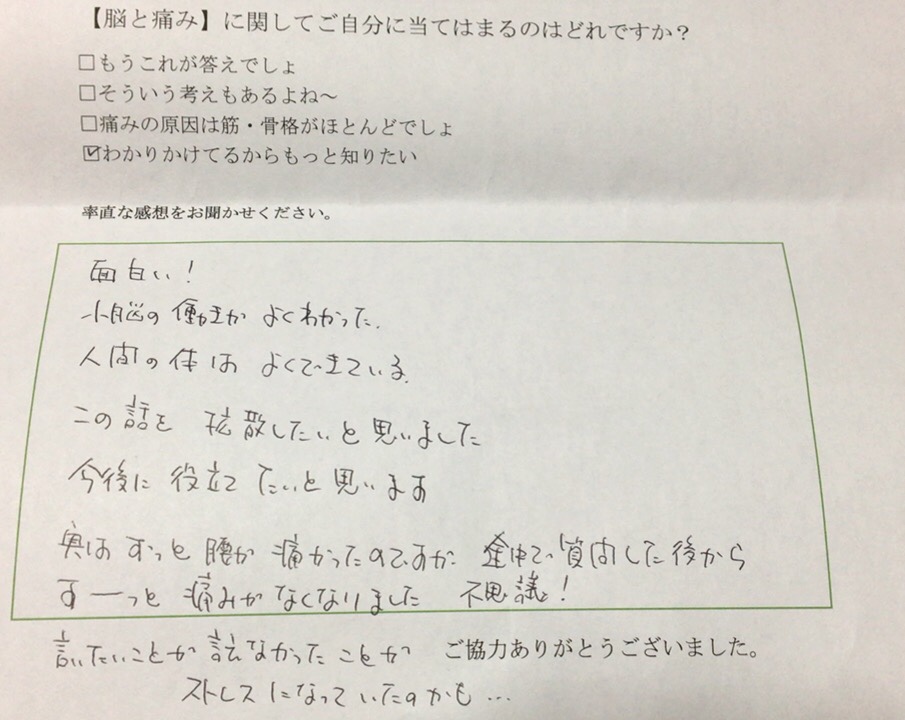 【脳と痛み】に関してご自分に当てはまるのはどれですか？
□もうこれが答えでしょ
□そういう考えもあるよね〜
□痛みの原因は筋・骨格がほとんどでしょ
☑わかりかけてるからもっと知りたい
率直な感想をお聞かせください。
面白い！
小脳の働きが よくわかった.
人間の体は よくできている.
この話を 拡散したいと思いました
今後に 役立てたいと思います
実は ずっと 腰が 痛かったのですが 途中で 質問した後から
すーっと 痛みがなくなりました 不思議！
言いたいことが 言えなかったことが ご協力ありがとうございました。
ストレスになっていたのかも…